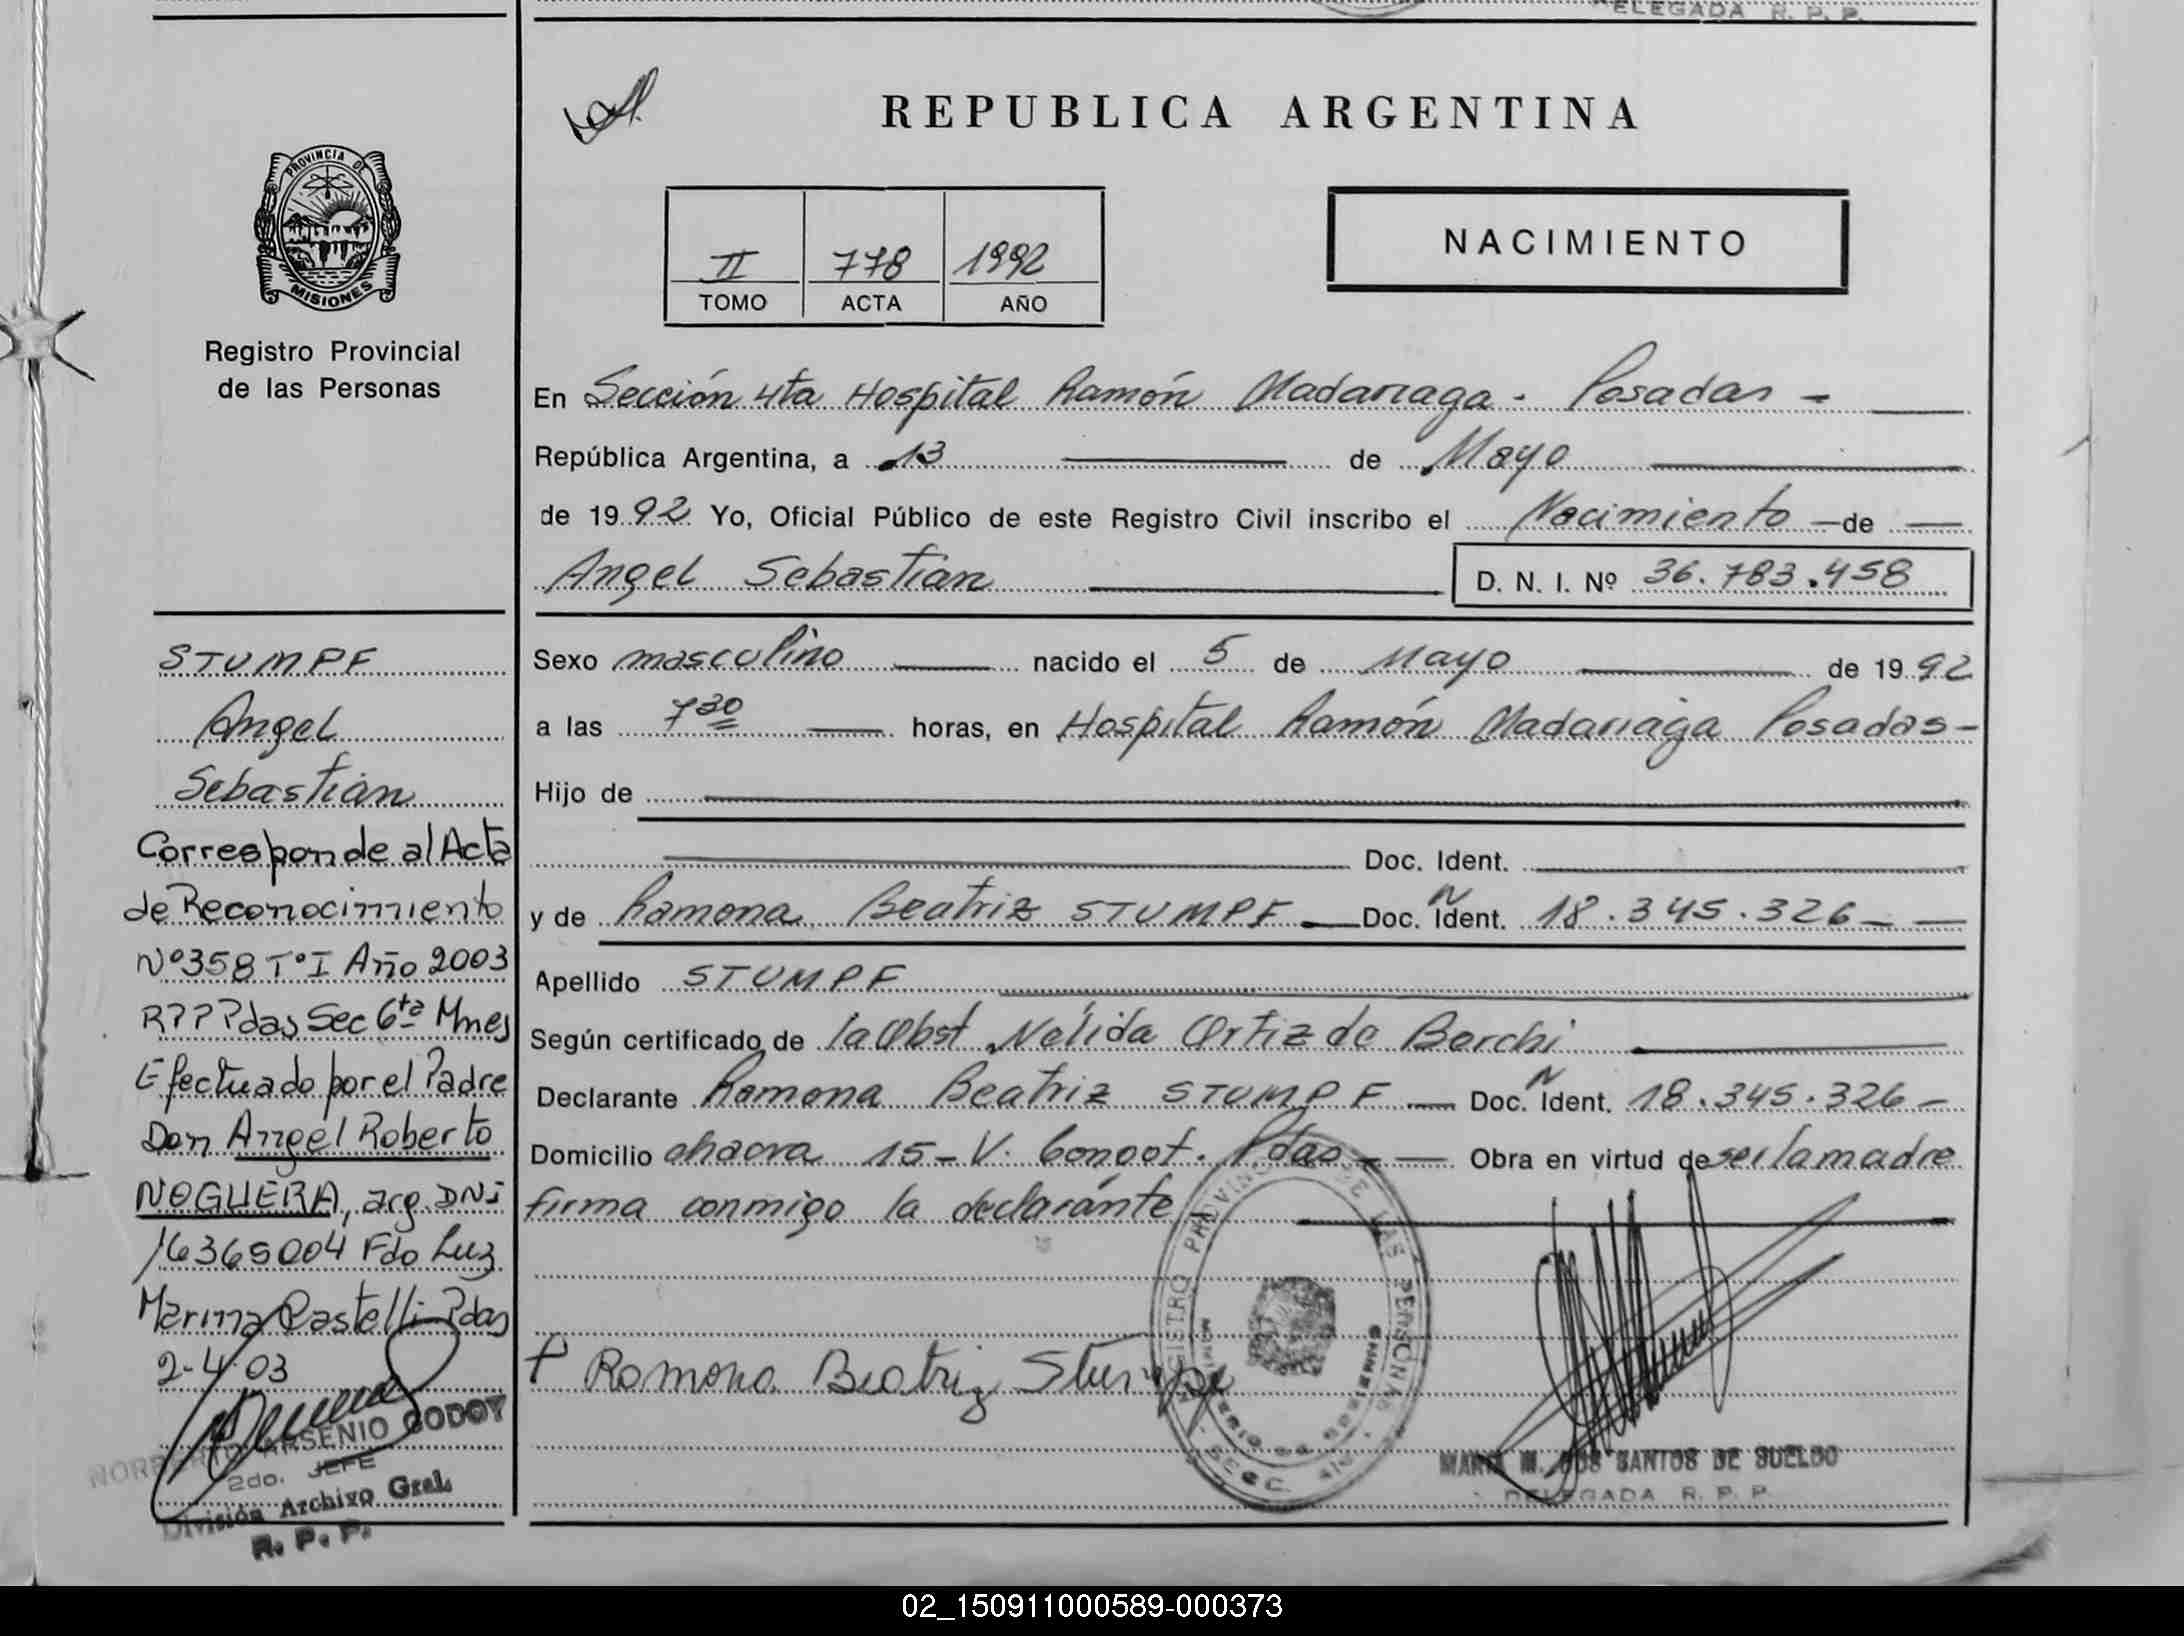 DELEGADA R. P. P.
REPUBLICA ARGENTINA
PROVINCIA DE
MISIONES
Registro Provincial
de las Personas
II 778 1992
TOMO ACTA AÑO
NACIMIENTO
En Sección 4ta Hospital Ramón Madariaga - Posadas -
República Argentina, a 13 de Mayo
de 1992 Yo, Oficial Público de este Registro Civil inscribo el Nacimiento de
Angel Sebastian D. N. I. Nº 36.783.458
Sexo masculino nacido el 5 de Mayo de 1992
a las 7 30 horas, en Hospital Ramón Madariaga Posadas-
Hijo de
Doc. Ident.
y de Ramona Beatriz STUMPF Doc. N Ident. 18.345.326
Apellido STUMPF
Según certificado de la Obst Nélida Ortiz de Borchi
Declarante Ramona Beatriz STUMPF Doc. N Ident. 18.345.326-
Domicilio chacra 15- V. Pdas Obra en virtud de ser la madre
firma conmigo la declarante
Ramona Beatriz Stumpf
REGISTRO PROVINCIAL DE LAS PERSONAS
MARIA M. DOS SANTOS DE SUELDO
DELEGADA R. P. P.
STUMPF
Angel
Sebastian
Corresponde al Acta
de Reconocimiento
Nº358 TºI Año 2003
R??? Pdas Sec 6ta Mnes
Efectuado por el Padre
Don Angel Roberto
NOGUERA, arg. DNI
16365004 Fdo Luz
Marina Castelli Pdas
2-4-03
NORBERTO ARSENIO GODOY
2do. JEFE
División Archivo Gral.
R. P. P.
02_150911000589-000373